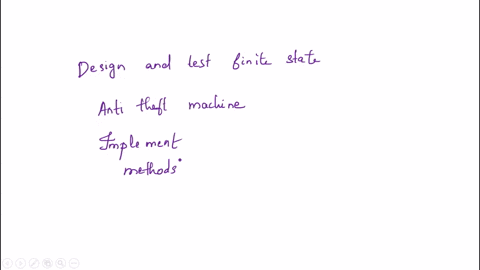 Design and test finite state
Anti theft machine
Implement
methods